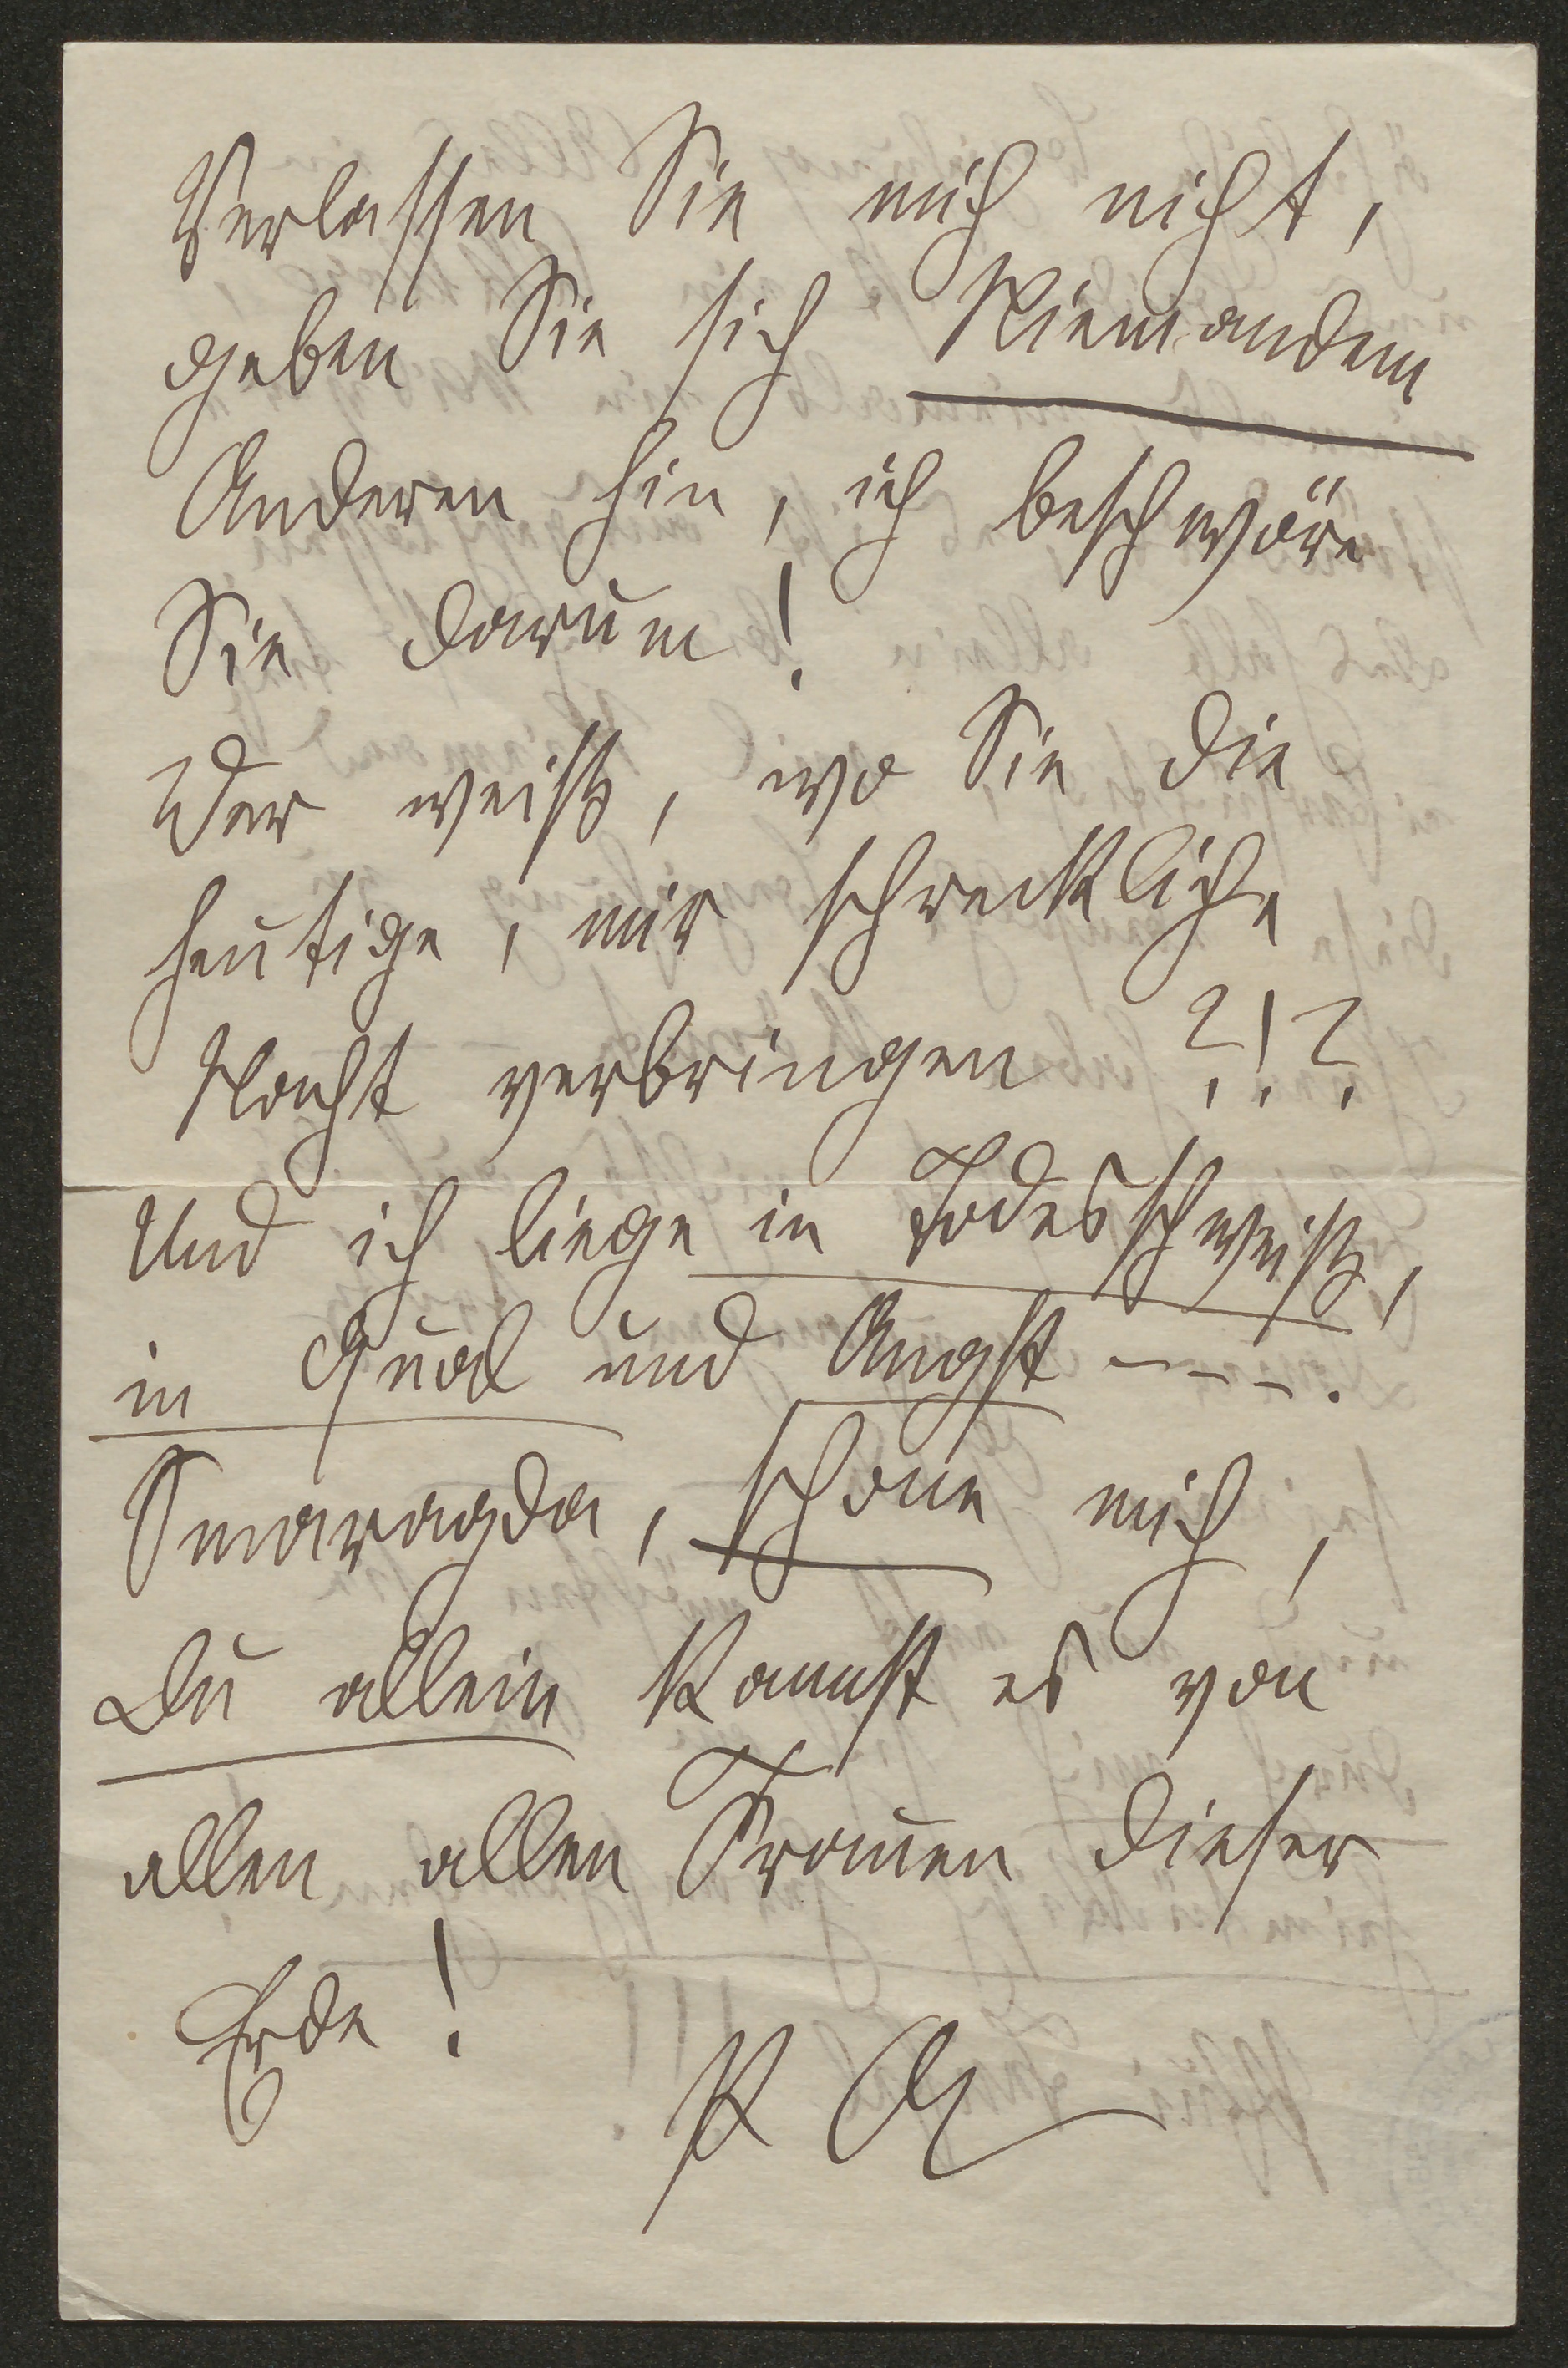 Verlassen Sie mich nicht,
geben Sie sich Niemandem
Anderen hin, ich beschwöre
Sie darum!
Wer weiß, wo Sie die
heutige, mir schreckliche
Nacht verbringen ?!?
Und ich liege in Todesschweiß,
in Qual und Angst ----.
Smaragda, schone mich,
Du allein kannst es von
allen allen Frauen dieser
Erde!